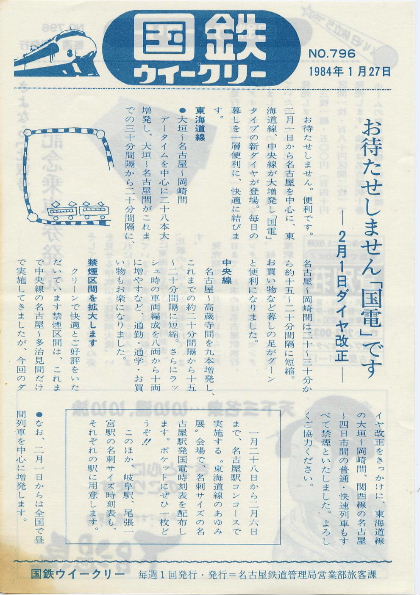 国鉄
ウイークリー
NO.796
1984年1月27日
お待たせしません「国電」です
―2月1日ダイヤ改正―
お待たせしません。便利です。
二月一日から名古屋を中心に、東
海道線、中央線が大増発し「国電」
タイプの新ダイヤが登場。毎日の
暮しを一層便利に、快適に結びま
す。
東海道線
●大垣〜名古屋〜岡崎間
データイムを中心に二十八本大
増発し、大垣〜名古屋間がこれま
での三十分間隔から二十分間隔に、
名古屋〜岡崎間は二十〜三十分か
ら約十五〜二十分間隔に短縮
お買い物など暮しの足がグーン
と便利になりました。
中央線
名古屋〜高蔵寺間を九本増発し、
これまでの約二十分間隔から十五
〜二十分間隔に短縮、さらにラッ
シュ時の車両編成を八両から十両
に増やすなど、通勤・通学・お買
い物もお楽になりました。
禁煙区間を拡大します
クリーンで快適とご好評をいた
だいています禁煙区間は、これま
で中央線の名古屋〜多治見間だけ
で実施してきましたが、今回のダ
イヤ改正をきっかけに、東海道線
の大垣〜岡崎間、関西線の名古屋
〜四日市間の普通・快速列車もす
べて禁煙といたしました。よろし
くご協力ください。
一月二十八日から二月六日
まで、名古屋駅コンコースで
実施する〝東海道線のあゆみ
展〟会場で、名刺サイズの名
古屋駅発国電時刻表を配布し
ます。ポケットにぜひ一枚ど
うぞ!!
このほか、岐阜駅、尾張一
宮駅の名刺サイズ時刻表も、
それぞれの駅に用意します。
●なお、二月一日からは全国で昼
間列車を中心に増発します。
国鉄ウイークリー
毎週1回発行・発行=名古屋鉄道管理局営業部旅客課